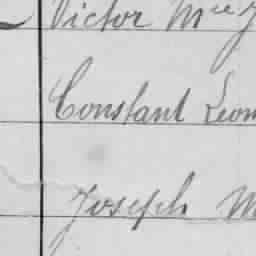 Victor Mce J
Constant Leon
Joseph M